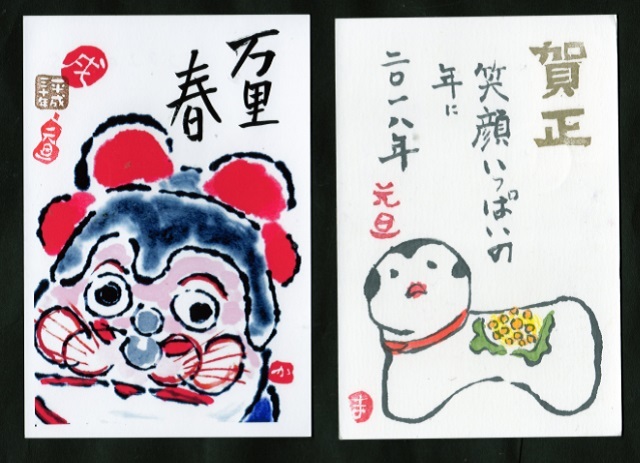 万里
春
平成
三十年
元旦
か
賀正
笑顔いっぱいの
年に
二〇一八年
元旦